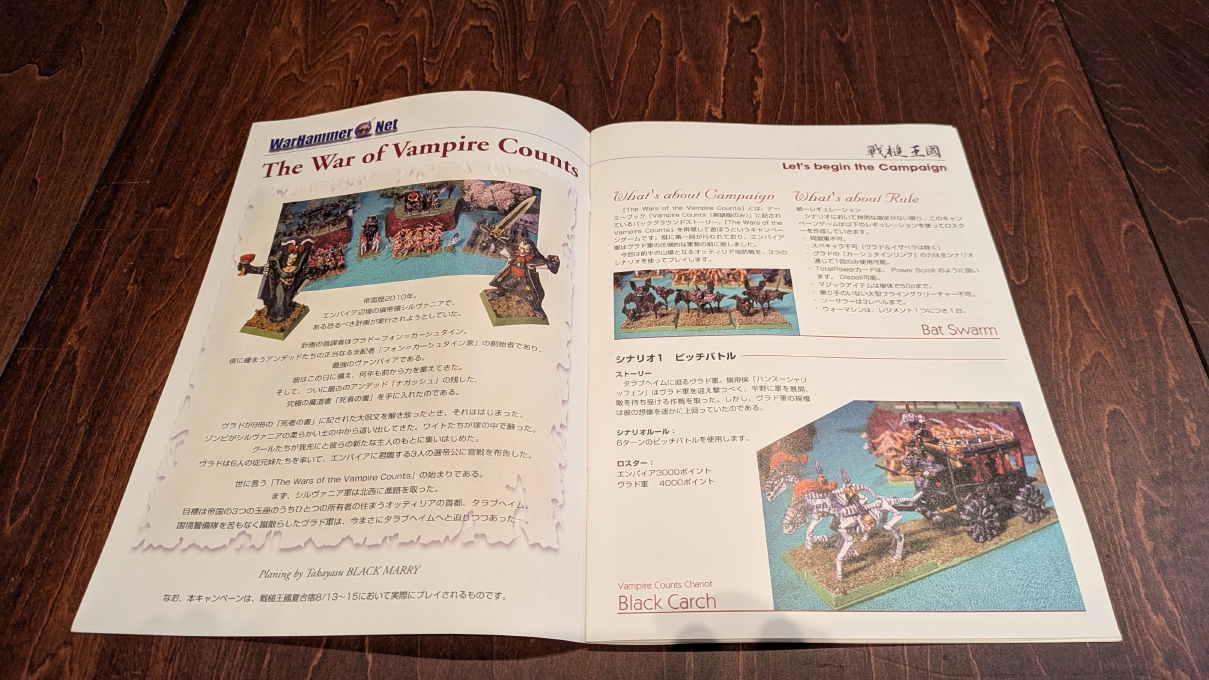 WarHammer Net
The War of Vampire Counts
帝国歴2010年。
エンパイア辺境の選帝領シルヴァニアで、
ある恐るべき計画が実行されようとしていた。
計画の首謀者はヴラド=フォン=カーシュタイン。
夜に棲まうアンデッドたちの正当なる支配者「フォン=カーシュタイン家」の創始者であり、
最強のヴァンパイアである。
彼はこの日に備え、何年も前から力を蓄えてきた。
そして、ついに最古のアンデッド「ナガッシュ」の残した、
究極の魔道書「死者の書」を手に入れたのである。
ヴラドが9冊の「死者の書」に記された大呪文を解き放ったとき、それははじまった。
ゾンビがシルヴァニアの柔らかい土の中から這い出してきた。ワイトたちが塚の中で蘇った。
グールたちが我先にと彼らの新たな主人のもとに集いはじめた。
ヴラドは6人の従兄妹たちを率いて、エンパイアに君臨する3人の選帝公に宣戦を布告した。
世に言う「The Wars of the Vampire Counts」の始まりである。
まず、シルヴァニア軍は北西に進路を取った。
目標は帝国の3つの玉座のうちひとつの所有者の住まうオッティリアの首都、タラブヘイム。
国境警備隊を苦もなく蹴散らしたヴラド軍は、今まさにタラブヘイムへと迫りつつあった…
Planing by Takayasu BLACK MARRY
なお、本キャンペーンは、戦槌王國夏合宿8/13~15において実際にプレイされるものです。
戦槌王國
Let's begin the Campaign
What's about Campaign
「The Wars of the Vampire Counts」とは、アー
ミーブック「Vampire Counts(英語版のみ)」に記され
ているバックグラウンドストーリー、「The Wars of the
Vampire Counts」を再現して遊ぼうというキャンペー
ンゲームです。既に第一回が行われており、エンパイア
軍はヴラド軍の圧倒的な軍勢の前に屈しました。
今回は前半の山場となるオッティリア攻防戦を、3つの
シナリオを使ってプレイします。
What's about Rule
統一レギュレーション
シナリオにおいて特別な指定がない限り、このキャン
ペーンゲームは以下のレギュレーションを使ってロスタ
ーを作成していきます。
・同盟軍不可。
・スペキャラ不可(ヴラド&イザベラは除く)
・ヴラドの「カーシュタインリング」の力は全シナリオ
通じて1回のみ使用可能。
・TotalPowerカードは、Power Scroll のように扱い
ます。Dispell可能。
・マジックアイテムは単体で50pまで。
・乗り手のいない大型フライングクリーチャー不可。
・ソーサラーは3レベルまで。
・ウォーマシンは、レジメント1つにつき1台。
Bat Swarm
シナリオ1 ピッチバトル
ストーリー
タラブヘイムに迫るヴラド軍。選帝侯「ハンス=シャリ
ッフェン」はヴラド軍を迎え撃つべく、平野に軍を展開、
敵を待ち受ける作戦を取った。しかし、ヴラド軍の規模
は彼の想像を遥かに上回っていたのである。
シナリオルール:
6ターンのピッチバトルを使用します。
ロスター:
エンパイア3000ポイント
ヴラド軍 4000ポイント
Vampire Counts Chariot
Black Carch